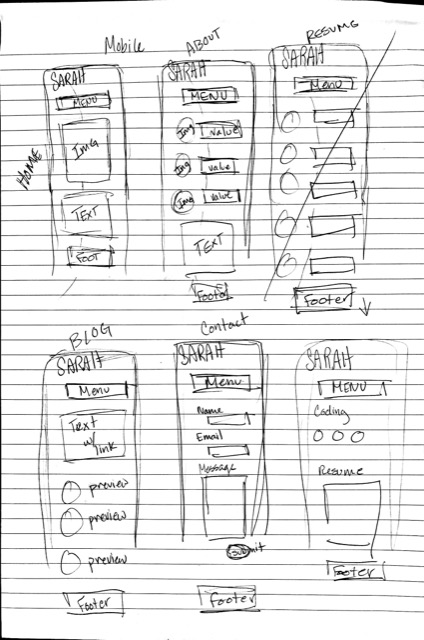 Mobile
ABOUT
RESUME
HOME
SARAH
MENU
IMG
TEXT
FOOT
SARAH
MENU
Img value
Img value
Img value
TEXT
Footer
SARAH
Menu
Footer
BLOG
SARAH
Menu
Text
w/link
preview
preview
preview
Footer
Contact
SARAH
Menu
Name
Email
Message
Submit
Footer
SARAH
MENU
Coding
Resume
Footer